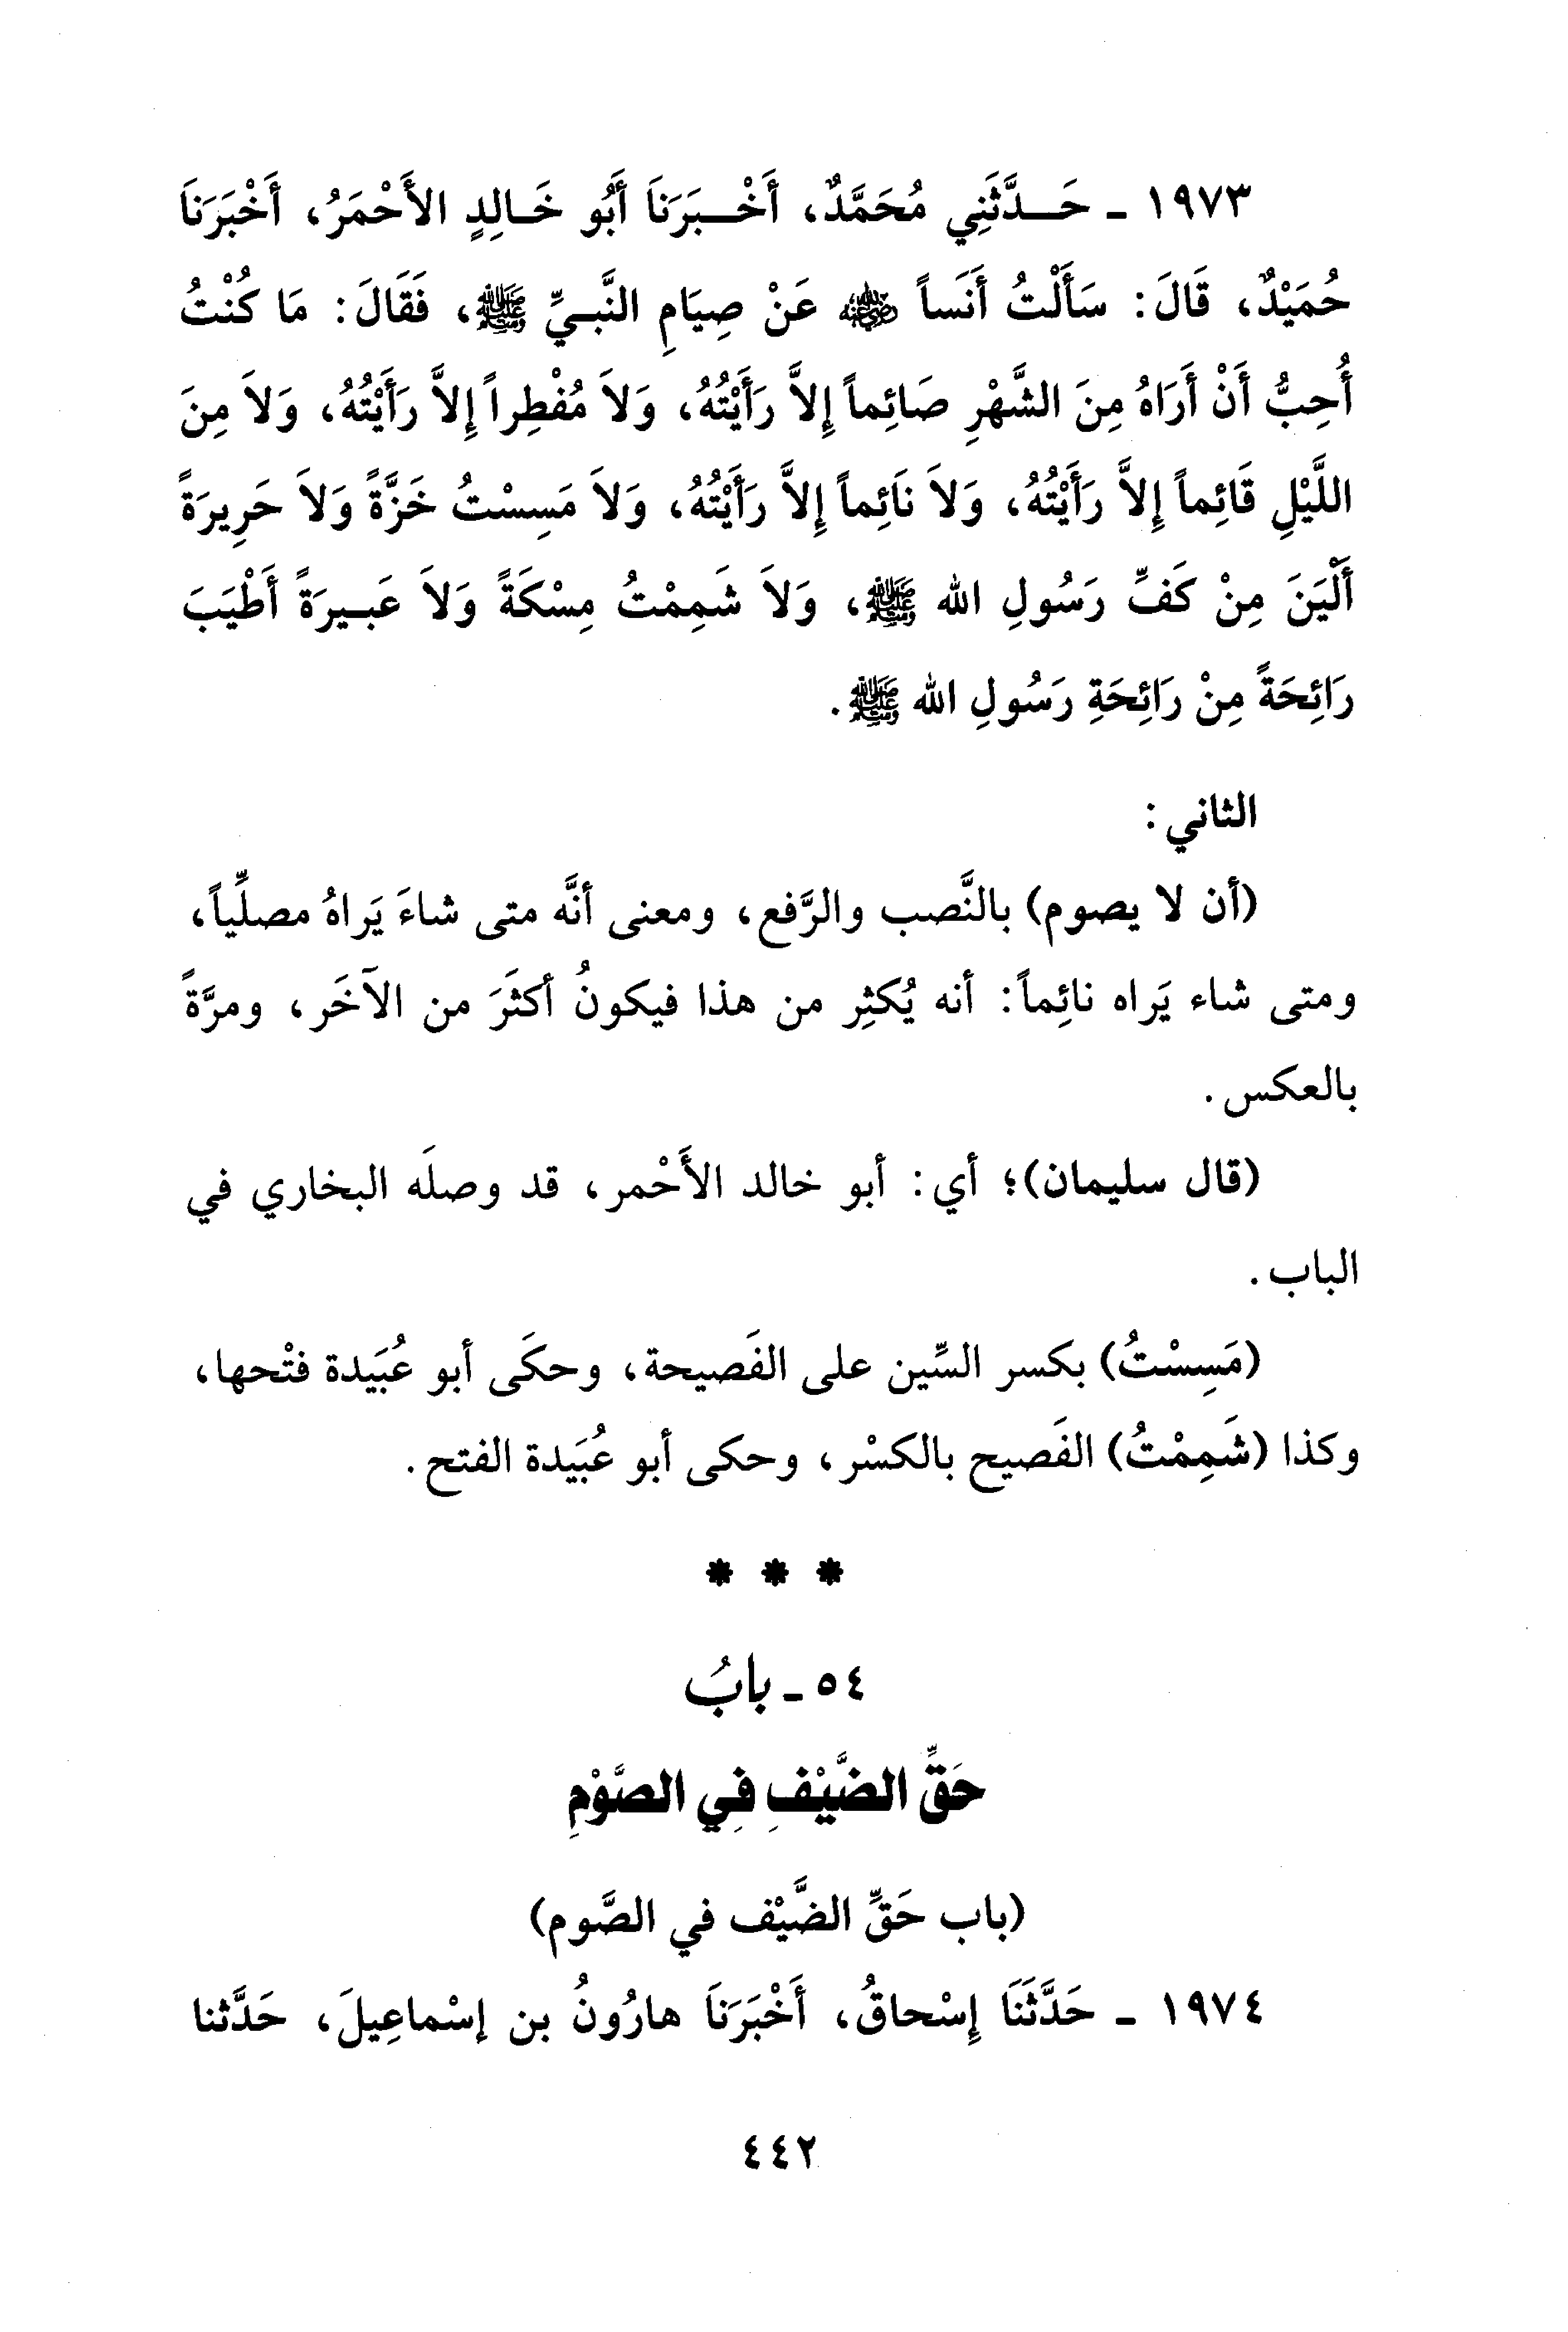 ١٩٧٣ ـ حَـدَّثَنِي مُحَمَّدٌ، أَخْـبَرَنَا أَبُو خَـالِدٍ الأَحْمَرُ، أَخْبَرَنَا
حُمَيْدٌ، قَالَ: سَأَلْتُ أَنَساً رضي الله عنه عَنْ صِيَامِ النَّبِيِّ ﷺ، فَقَالَ: مَا كُنْتُ
أُحِبُّ أَنْ أَرَاهُ مِنَ الشَّهْرِ صَائِماً إِلاَّ رَأَيْتُهُ، وَلاَ مُفْطِراً إِلاَّ رَأَيْتُهُ، وَلاَ مِنَ
اللَّيْلِ قَائِماً إِلاَّ رَأَيْتُهُ، وَلاَ نَائِماً إِلاَّ رَأَيْتُهُ، وَلاَ مَسِسْتُ خَزَّةً وَلاَ حَرِيرَةً
أَلْيَنَ مِنْ كَفِّ رَسُولِ الله ﷺ، وَلاَ شَمِمْتُ مِسْكَةً وَلاَ عَبِيرَةً أَطْيَبَ
رَائِحَةً مِنْ رَائِحَةِ رَسُولِ الله ﷺ.
الثاني:
(أن لا يصوم) بالنَّصب والرَّفع، ومعنى أنَّه متى شاءَ يَراهُ مصلِّياً،
ومتى شاء يَراه نائِماً: أنه يُكثِر من هذا فيكونُ أكثَرَ من الآخَر، ومرَّةً
بالعكس.
(قال سليمان)؛ أي: أبو خالد الأَحْمر، قد وصلَه البخاري في
الباب.
(مَسِسْتُ) بكسر السِّين على الفَصيحة، وحكَى أبو عُبَيدة فتْحها،
وكذا (شَمِمْتُ) الفَصيح بالكسْر، وحكى أبو عُبَيدة الفتح.
* * *
٥٤ ـ بابُ
حَقِّ الضَّيْفِ فِي الصَّوْمِ
(باب حَقِّ الضَّيْف في الصَّوم)
١٩٧٤ ـ حَدَّثَنَا إِسْحاقُ، أَخْبَرَنَا هارُونُ بن إسْماعِيلَ، حَدَّثنا
٤٤٢